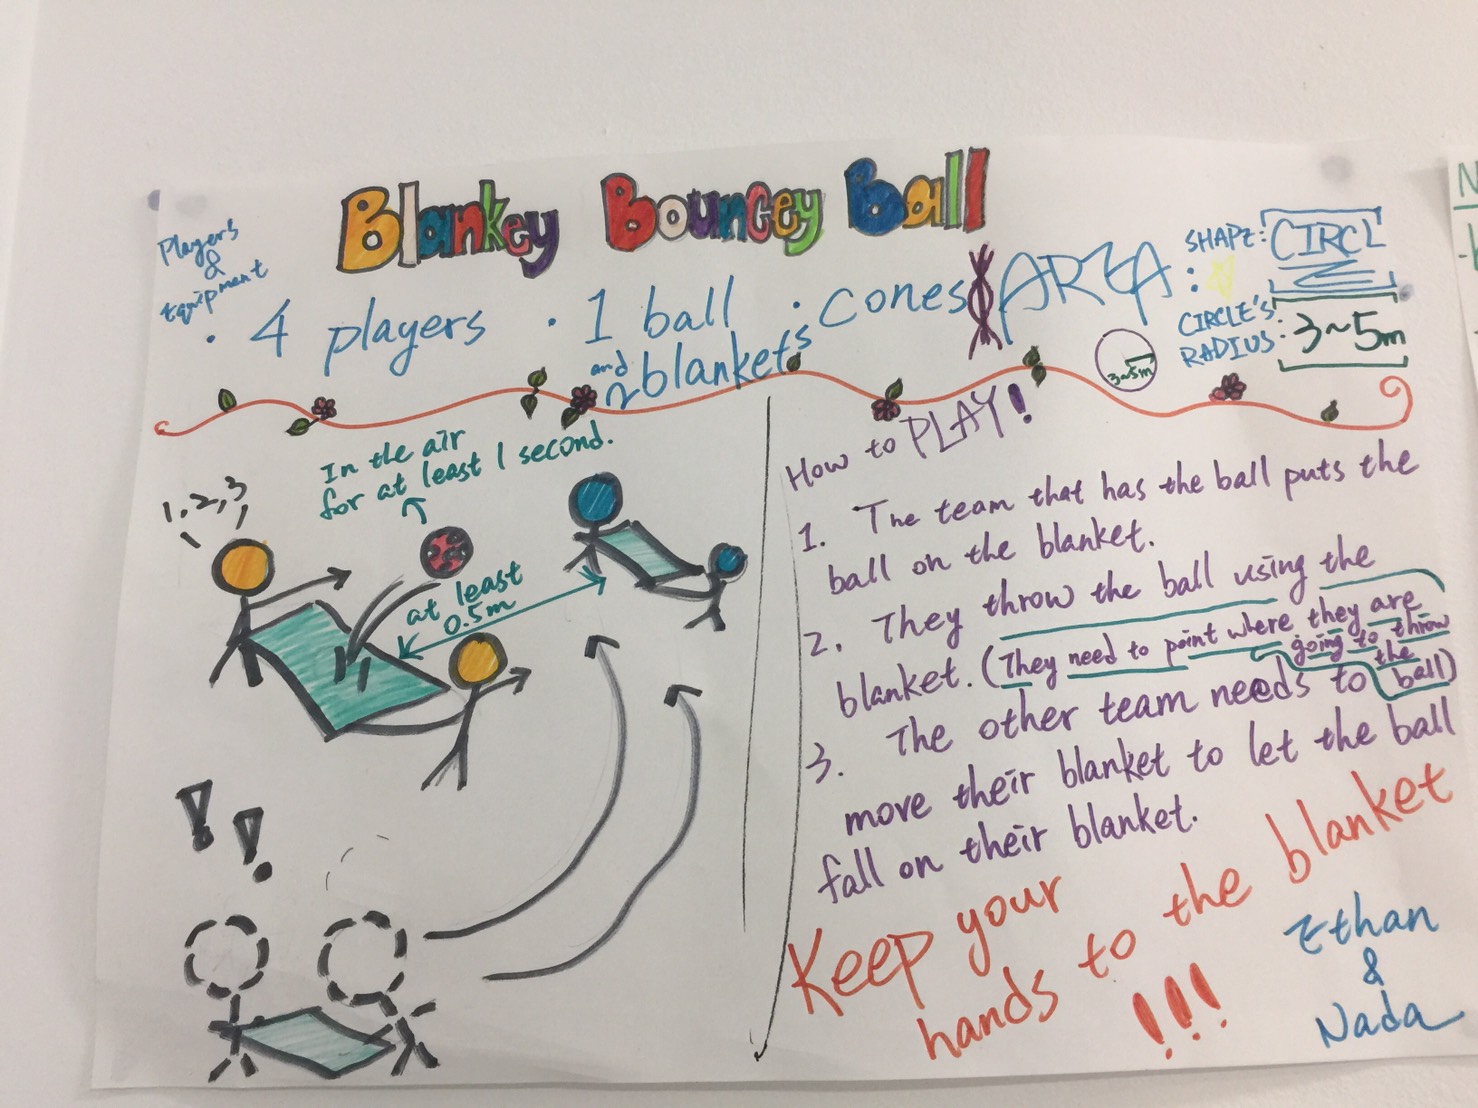 Blankey Bouncey Ball
Players
&
Equipment
· 4 players
· 1 ball
and
2 blankets
· cones
AREA :
SHAPE: CIRCLE
CIRCLE'S
RADIUS: 3~5m
3~5m
In the air
for at least 1 second.
1, 2, 3
at least
0.5m
!!
How to PLAY!
1. The team that has the ball puts the
ball on the blanket.
2. They throw the ball using the
blanket. (They need to point where they are
going to throw
the
ball)
3. The other team needs to
move their blanket to let the ball
fall on their blanket.
Keep your
hands to the blanket
!!!
Ethan
&
Nada